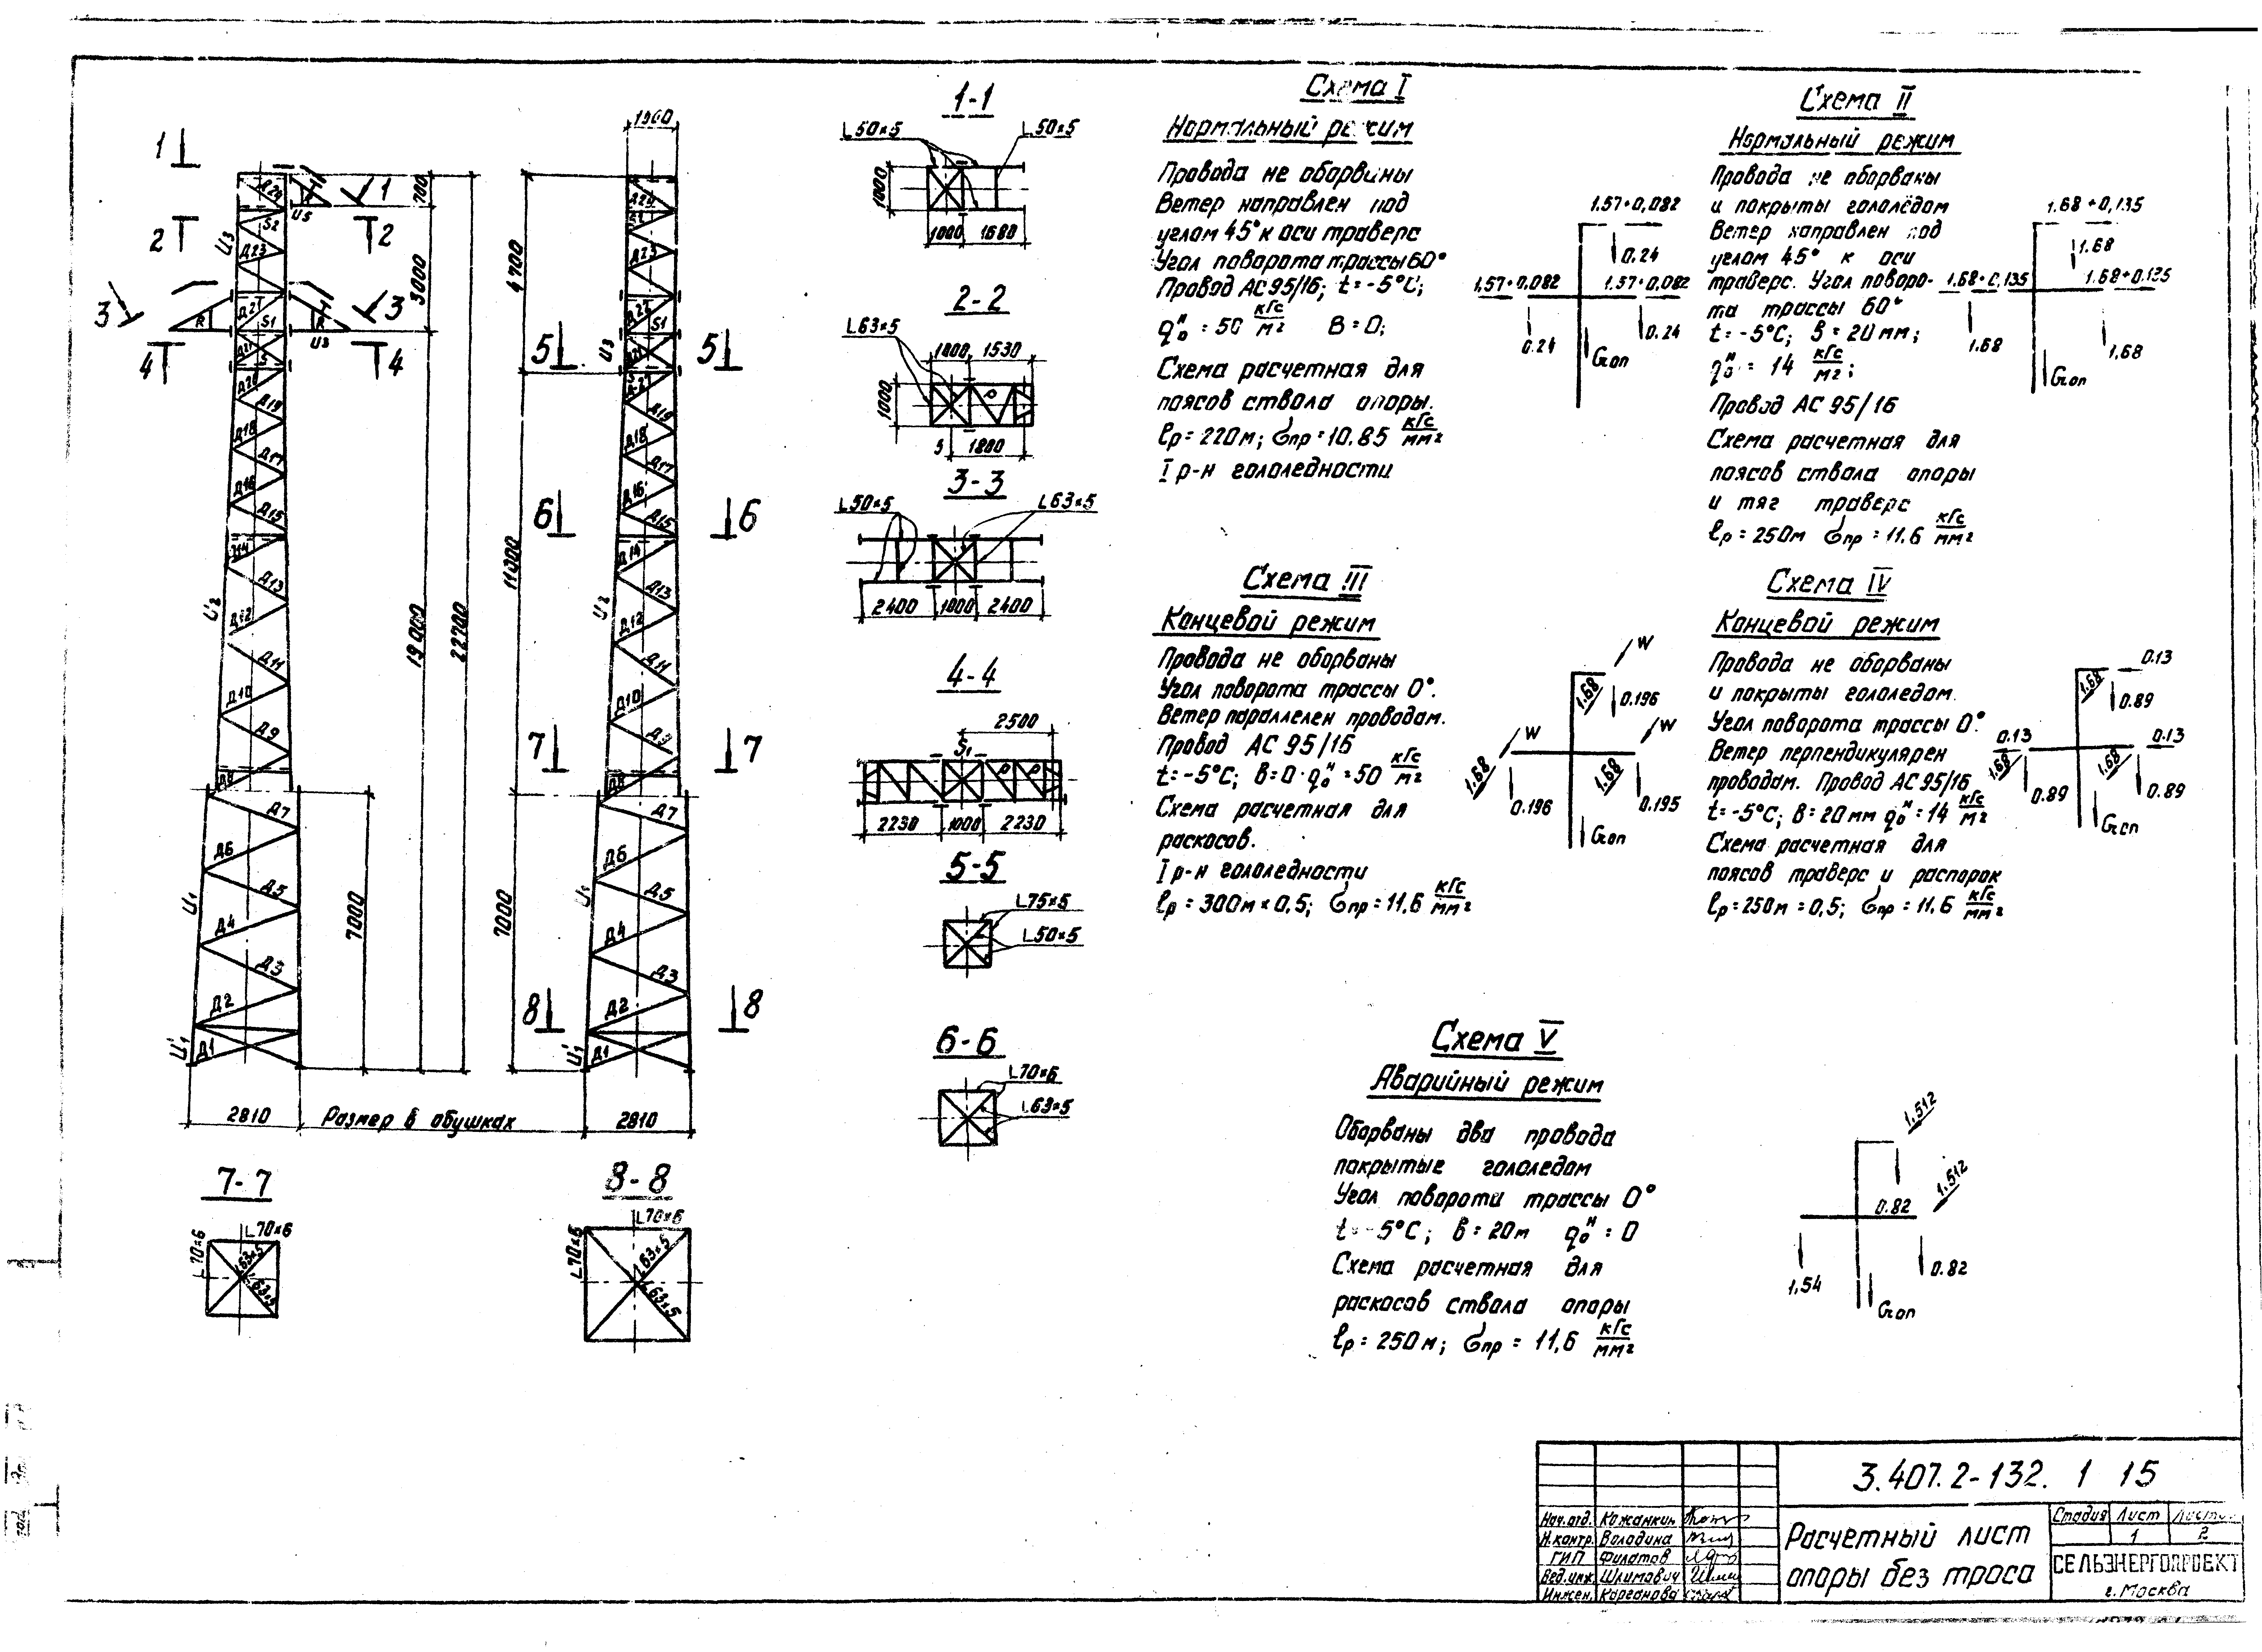 1
1
2
2
3
3
4
4
Д24
S2
U5
U3
Д23
Д21
S1
U3
Д21
S
Д20
Д19
Д18
Д17
Д16
Д15
Д14
Д13
U2
Д12
Д11
Д10
Д9
Д8
Д7
Д6
Д5
U1
Д4
Д3
Д2
U1'
Д1
700
3000
19900
22700
7000
2810
Размер в обушках
1900
4700
11000
7000
Д24
Д23
S1
U3
Д21
Д19
Д18
Д17
Д16
Д15
Д14
Д13
U2
Д12
Д11
Д10
Д9
Д8
Д7
Д6
Д5
U1
Д4
Д3
Д2
U1'
Д1
2810
5
5
6
6
7
7
8
8
1-1
L50×5
L50×5
1000
1000
1680
2-2
L63×5
1000
1530
1000
5
1880
3-3
L50×5
L63×5
2400
1000
2400
4-4
2500
S1
2230
1000
2230
5-5
L75×5
L50×5
6-6
L70×6
L63×5
7-7
L70×6
L70×6
L63×5
L63×5
8-8
L70×6
L70×6
L63×5
L63×5
Схема I
Нормальный режим
Провода не оборваны
Ветер направлен под
углом 45° к оси траверс
Угол поворота трассы 60°
Провод АС 95/16; t=-5°C;
q₀ᴴ = 50 кгс/м² В=0;
Схема расчетная для
поясов ствола опоры.
ℓр=220м; Ϭпр=10.85 кгс/мм²
I р-н гололедности
1.57+0,082
0.24
1.57+0.082
1.57+0.082
0.24
0.24
Gоп
Схема II
Нормальный режим
Провода не оборваны
и покрыты гололёдом
Ветер направлен под
углом 45° к оси
траверс. Угол поворо-
та трассы 60°
t=-5°C; В=20мм;
q₀ᴴ = 14 кгс/м²;
Провод АС 95/16
Схема расчетная для
поясов ствола опоры
и тяг траверс
ℓр=250м Ϭпр=11.6 кгс/мм²
1.68+0,135
1.68
1.68+0,135
1.68+0.135
1.68
1,68
Gоп
Схема III
Концевой режим
Провода не оборваны
Угол поворота трассы 0°.
Ветер параллелен проводам.
Провод АС 95/16
t=-5°C; В=0 q₀ᴴ=50 кгс/м²
Схема расчетная для
раскосов.
I р-н гололедности
ℓр=300м×0,5; Ϭпр=11,6 кгс/мм²
W
1.68
0.196
W
W
1.68
1.68
0.196
0.195
Gоп
Схема IV
Концевой режим
Провода не оборваны
и покрыты гололедом.
Угол поворота трассы 0°.
Ветер перпендикулярен
проводам. Провод АС 95/16
t=-5°C; В=20мм q₀ᴴ=14 кгс/м²
Схема расчетная для
поясов траверс и распорок
ℓр=250м=0,5; Ϭпр=11,6 кгс/мм²
0.13
1.68
0.89
0.13
0.13
1.68
1.68
0.89
0.89
Gоп
Схема V
Аварийный режим
Оборваны два провода
покрытые гололедом
Угол поворота трассы 0°
t=-5°C; В=20м q₀ᴴ=0
Схема расчетная для
раскосов ствола опоры
ℓр=250м; Ϭпр=11,6 кгс/мм²
1.512
1.512
0.82
1,54
0.82
Gоп
3.407.2-132. 1 15
Нач.отд. Кожанкин
Н.контр. Володина
ГИП Филатов
Вед.инж. Шлимович
Инжен.
Расчетный лист
опоры без троса
Стадия Лист
1 2
СЕЛЬЭНЕРГОПРОЕКТ
г. Москва